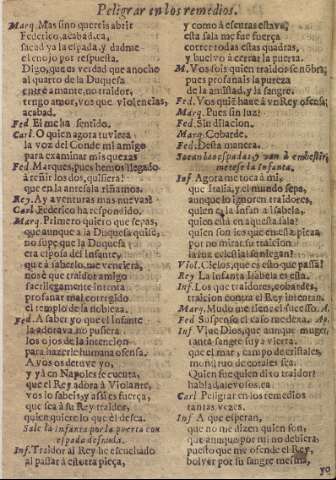 Peligrar en los remedios.
Marq. Mas si no quereis abrir
Federico, acabad, ea,
sacad ya la espada, y dadme
el enojo por respuesta.
Digo, que es verdad que anoche
al quarto de la Duquesa
entrè amante, no traidor,
tengo amor, vos que violencias,
acabad.
Fed. El me ha sentido.
Carl. O quien agora tuviera
la voz del Conde mi amigo
para examinar mis quexas
Fed Marques, pues hemos llegado
à reñir los dos, quisiera
que en la antesala riñamos.
Rey. Ay aventuras mas nuevas!
Carl. Federico ha respondido.
Marq. Primero quiero que sepas,
que aunque a la Duquesa quise,
no supe que la Duquesa
era esposa del Infante,
que à saberlo me venciera,
no sè que traidor amigo
sacrilegamente intenta
profanar mal corregido
el templo de la nobleza.
Fed. A saber yo que el Infante
la adorava, no pusiera
los ojos de la intencion
para hazerle humana ofensa.
A vos os detuve yo,
y yà en Napoles se cuenta,
que el Rey adora à Violante,
vos lo sabeis, y assi es fuerça,
que sea à su Rey traidor,
quien quiere lo que èl desea.
Sale la infanta por la puerta con
espada desnuda.
Inf. Traidor al Rey he escuchado
al passar à esta otra pieça,
y como à escuras estava,
esta sala me fue fuerça
correr todas estas quadras,
y buelvo à cerrar la puerta.
M. Vos sois quien traidor è noble,
pues profanais la pureza
de la amistad, y la sangre.
Fed. Vos quiè hace à vn Rey ofensa,
Marq. Pues sin luz?
Fed. Sin dilacion.
Marq. Cobarde.
Fed. Desta manera.
Sacan las espadas, y van à embestir,
metese la Infanta.
Inf Agora me toca à mi,
que Italia, y el mundo sepa,
aunque lo ignoren traidores,
quien es la Infanta Isabela,
quien està en aquesta sala?
quien son los que en esta pieça
por no mirar su traicion
la luz celestial
Viol. Cielos, que es esto que passa!
Rey La Infanta Isabela es esta.
Inf. Los que traidores, cobardes,
traicion contra el Rey intentan.
Marq. Mudo me tiene el sucesso. A.
Fed Suspenso el caso me dexa. Ap.
Inf Vive Dios, que aunque muger,
tanta sangre suya vierta,
que el mar, campo de cristales,
mongibelo de corales sea.
Quien fue quien dixo traidor?
hablad, alevosos, ea.
Carl Peligrar en los remedios
tantas vezes.
Inf A que esperan,
que no me dizen quien son,
que aunque por mi no debiera,
puesto que me ofende el Rey,
bolver por su sangre mesma,
yo